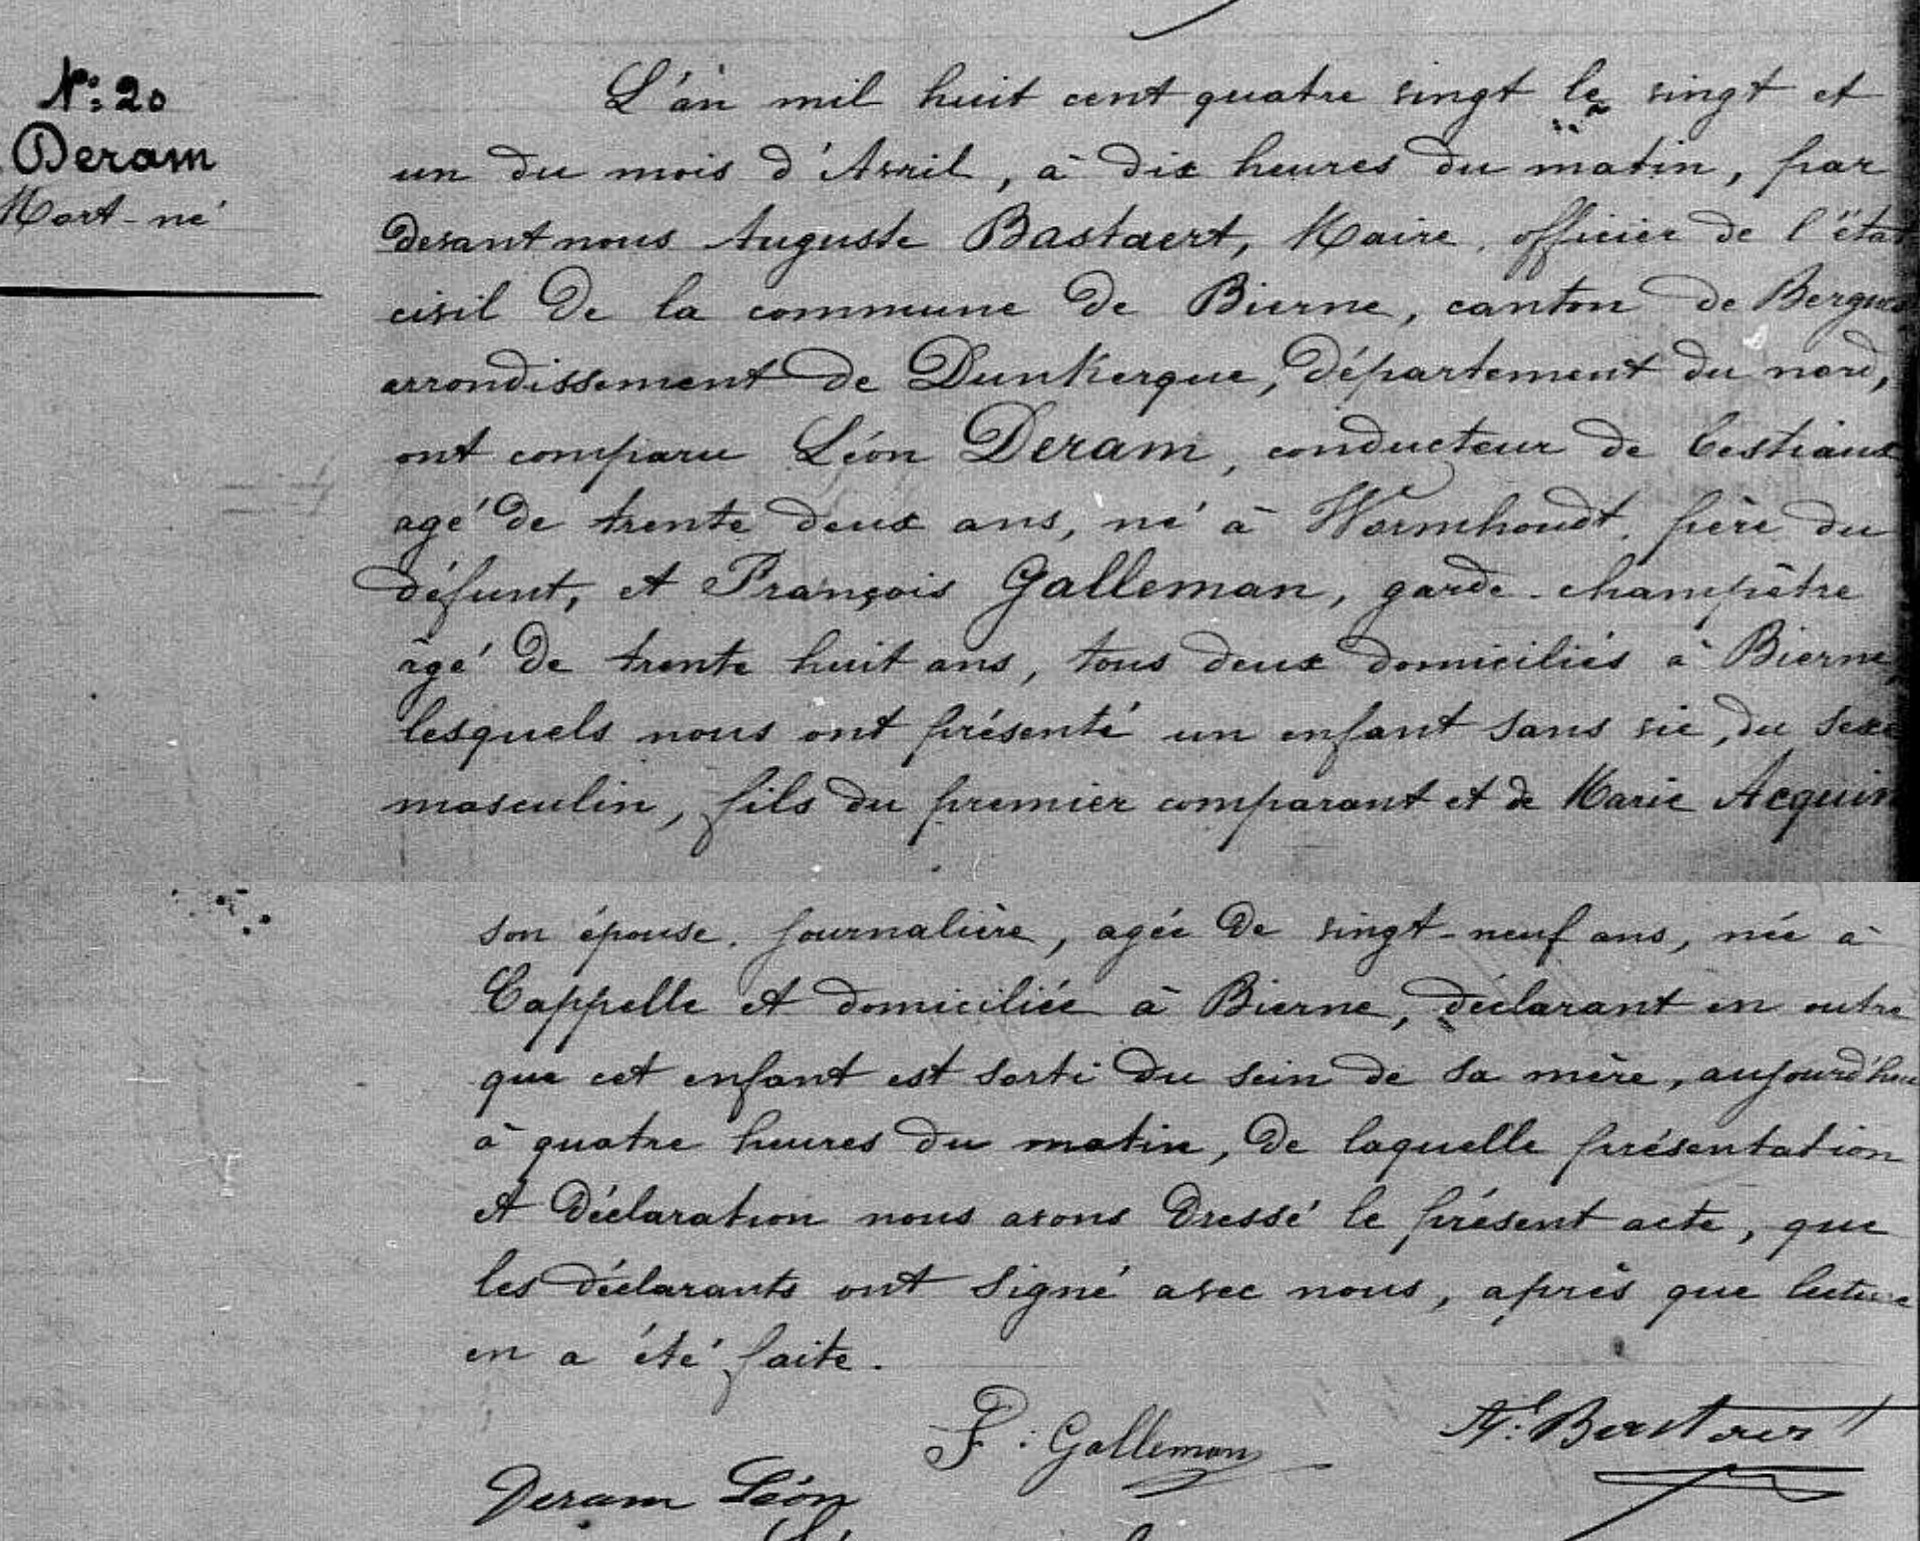 N°: 20
Deram
Mort-né
L'an mil huit cent quatre vingt le vingt et
un du mois d'Avril, à dix heures du matin, par
devant nous Auguste Bastaert, Maire, officier de l'état
civil de la commune de Bierne, canton de Bergues
arrondissement de Dunkerque, département du nord,
ont comparu Léon Deram, conducteur de bestiaux
agé de trente deux ans, né à Wormhoudt, père du
défunt, et François Galleman, garde-champêtre
âgé de trente huit ans, tous deux domiciliés à Bierne,
lesquels nous ont présenté un enfant sans vie, du sexe
masculin, fils du premier comparant et de Marie Acquin
son épouse, journalière, agée de vingt-neuf ans, née à
Cappelle et domiciliée à Bierne, déclarant en outre
que cet enfant est sorti du sein de sa mère, aujourd'hui
à quatre heures du matin, de laquelle présentation
et déclaration nous avons dressé le présent acte, que
les déclarants ont signé avec nous, après que lecture
en a été faite.
F. Galleman
At. Bastaert
Deram Léon